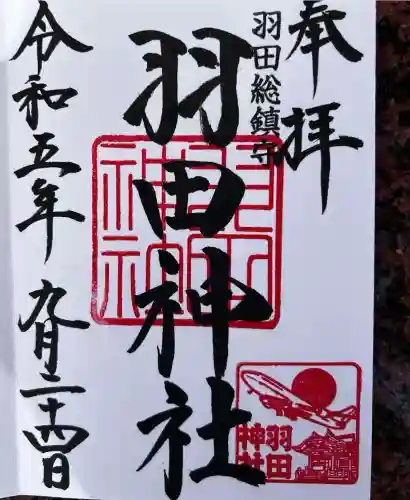 奉拝
羽田総鎮守
羽田神社
羽田神社
羽田
神社
令和五年 九月二十四日